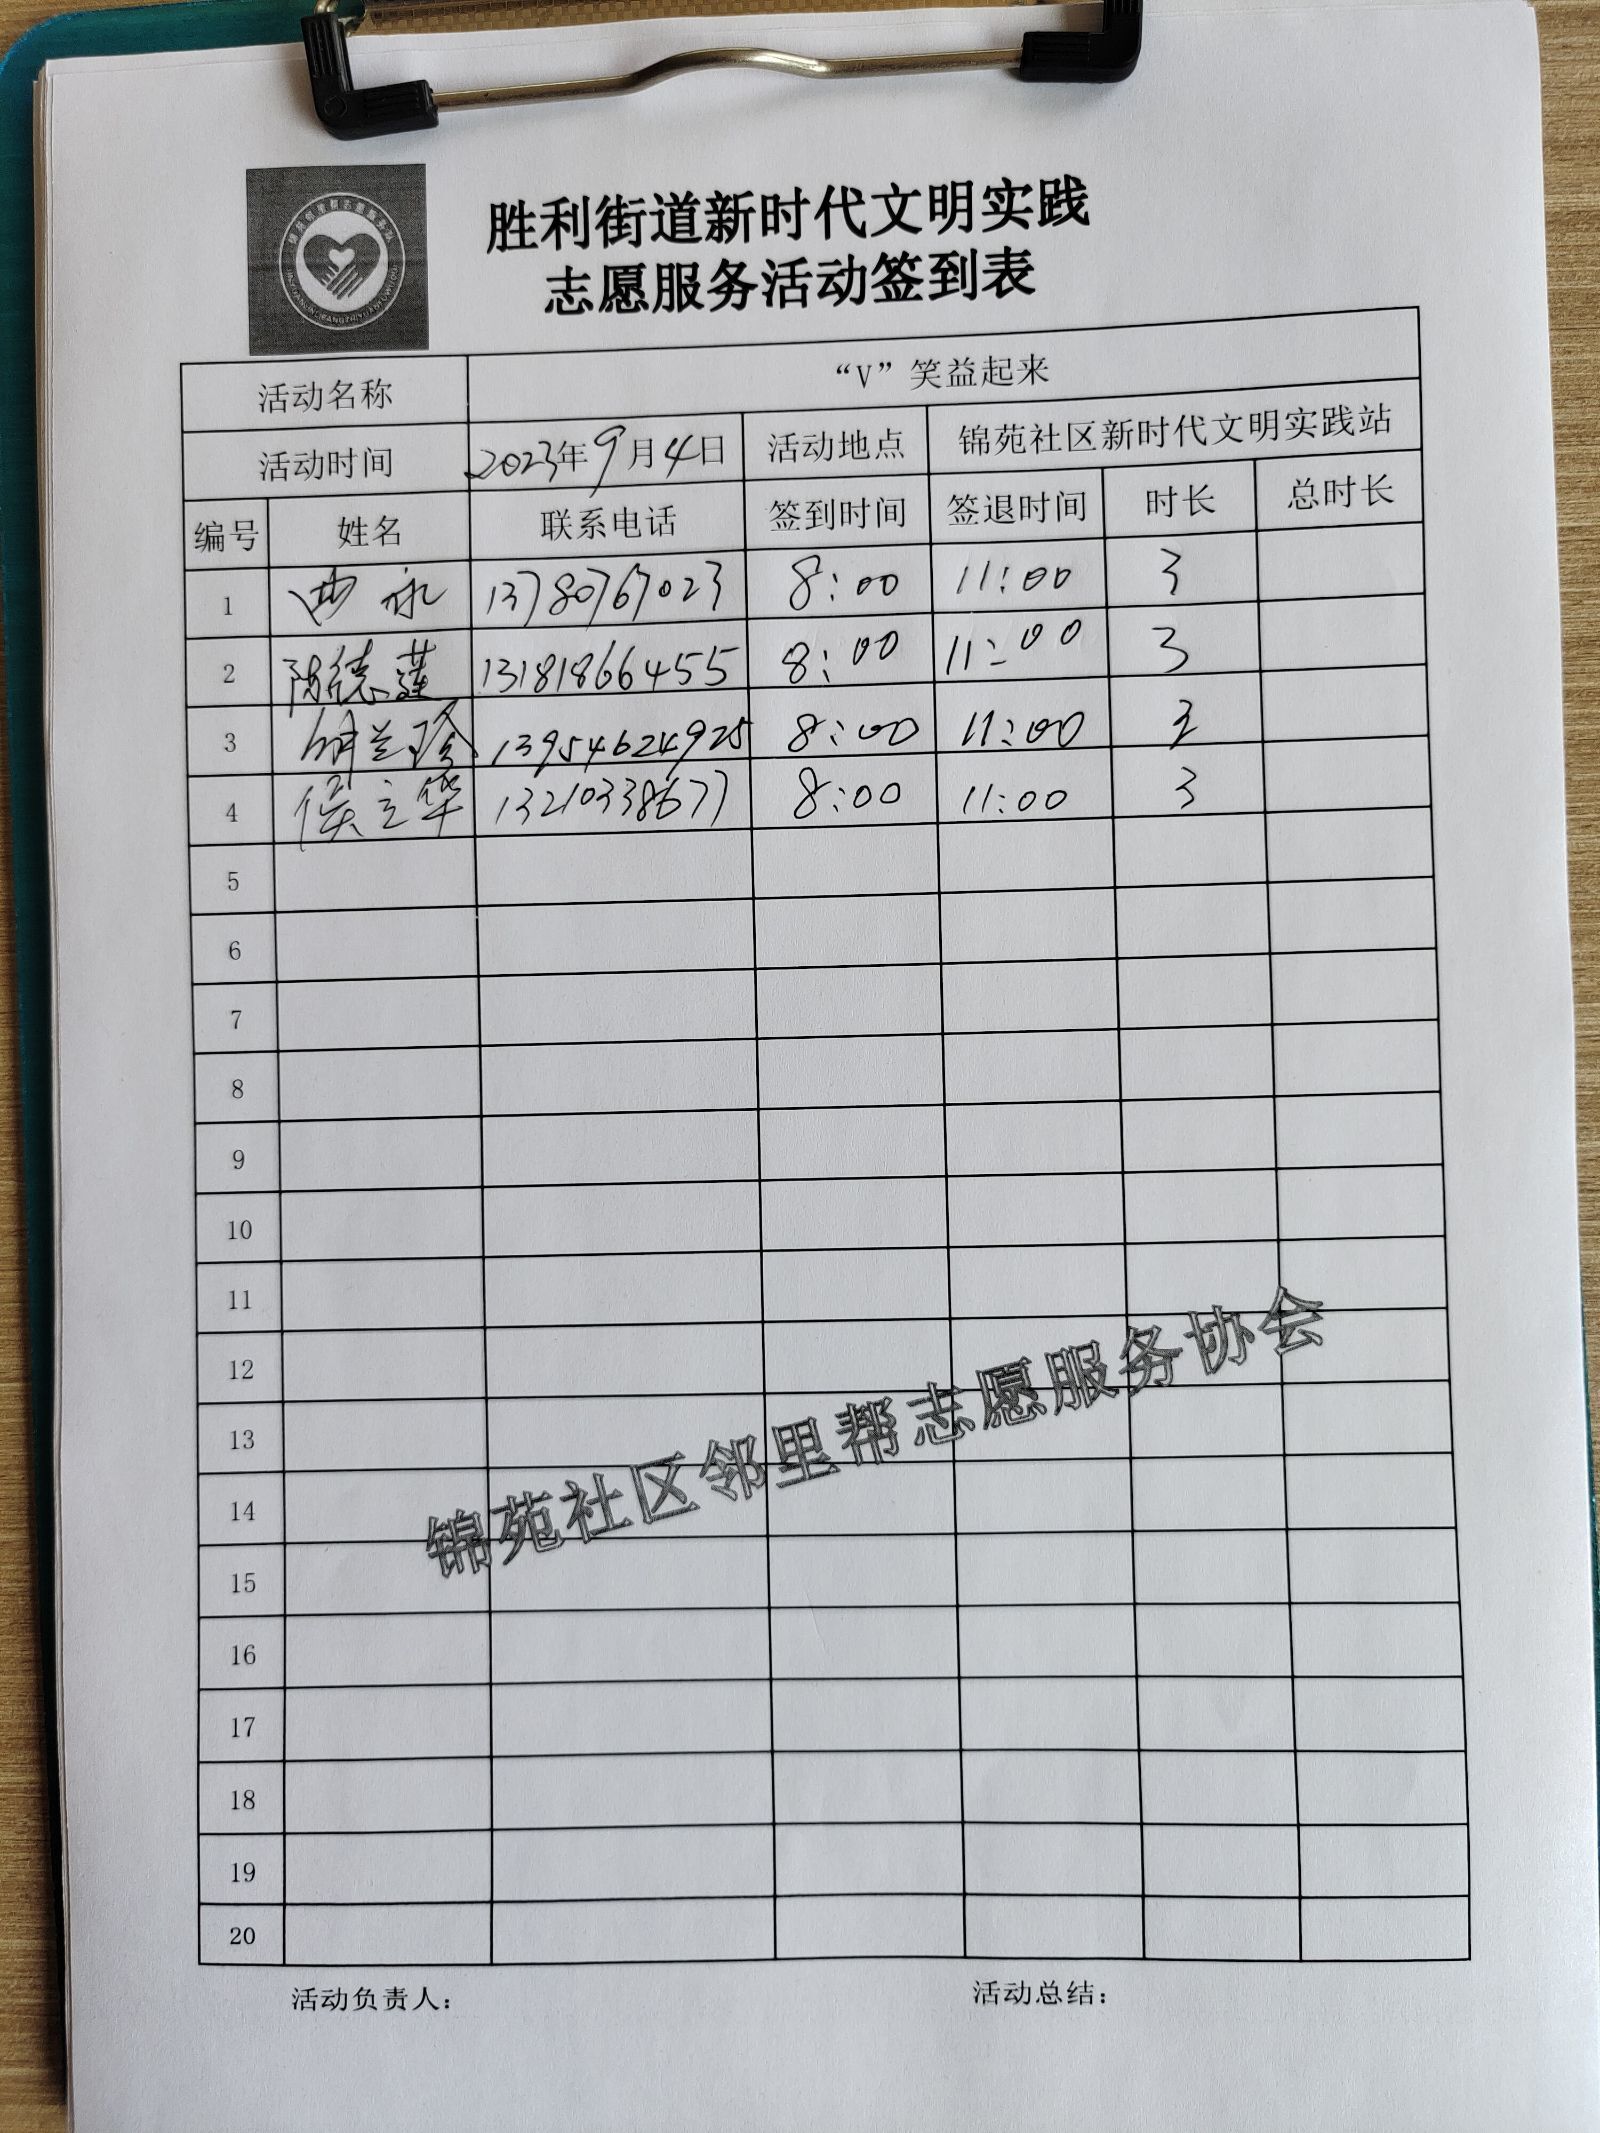 胜利街道新时代文明实践
志愿服务活动签到表
活动名称 “V”笑益起来
活动时间 2023年9月4日 活动地点 锦苑社区新时代文明实践站
编号 姓名 联系电话 签到时间 签退时间 时长 总时长
1 曲永 13780767023 8:00 11:00 3
2 陈德莲 13181866455 8:00 11:00 3
3 兰珍 13954624925 8:00 11:00 3
4 侯立华 13210338677 8:00 11:00 3
5
6
7
8
9
10
11
12
13
14
15
16
17
18
19
20
锦苑社区邻里帮志愿服务协会
活动负责人： 活动总结：